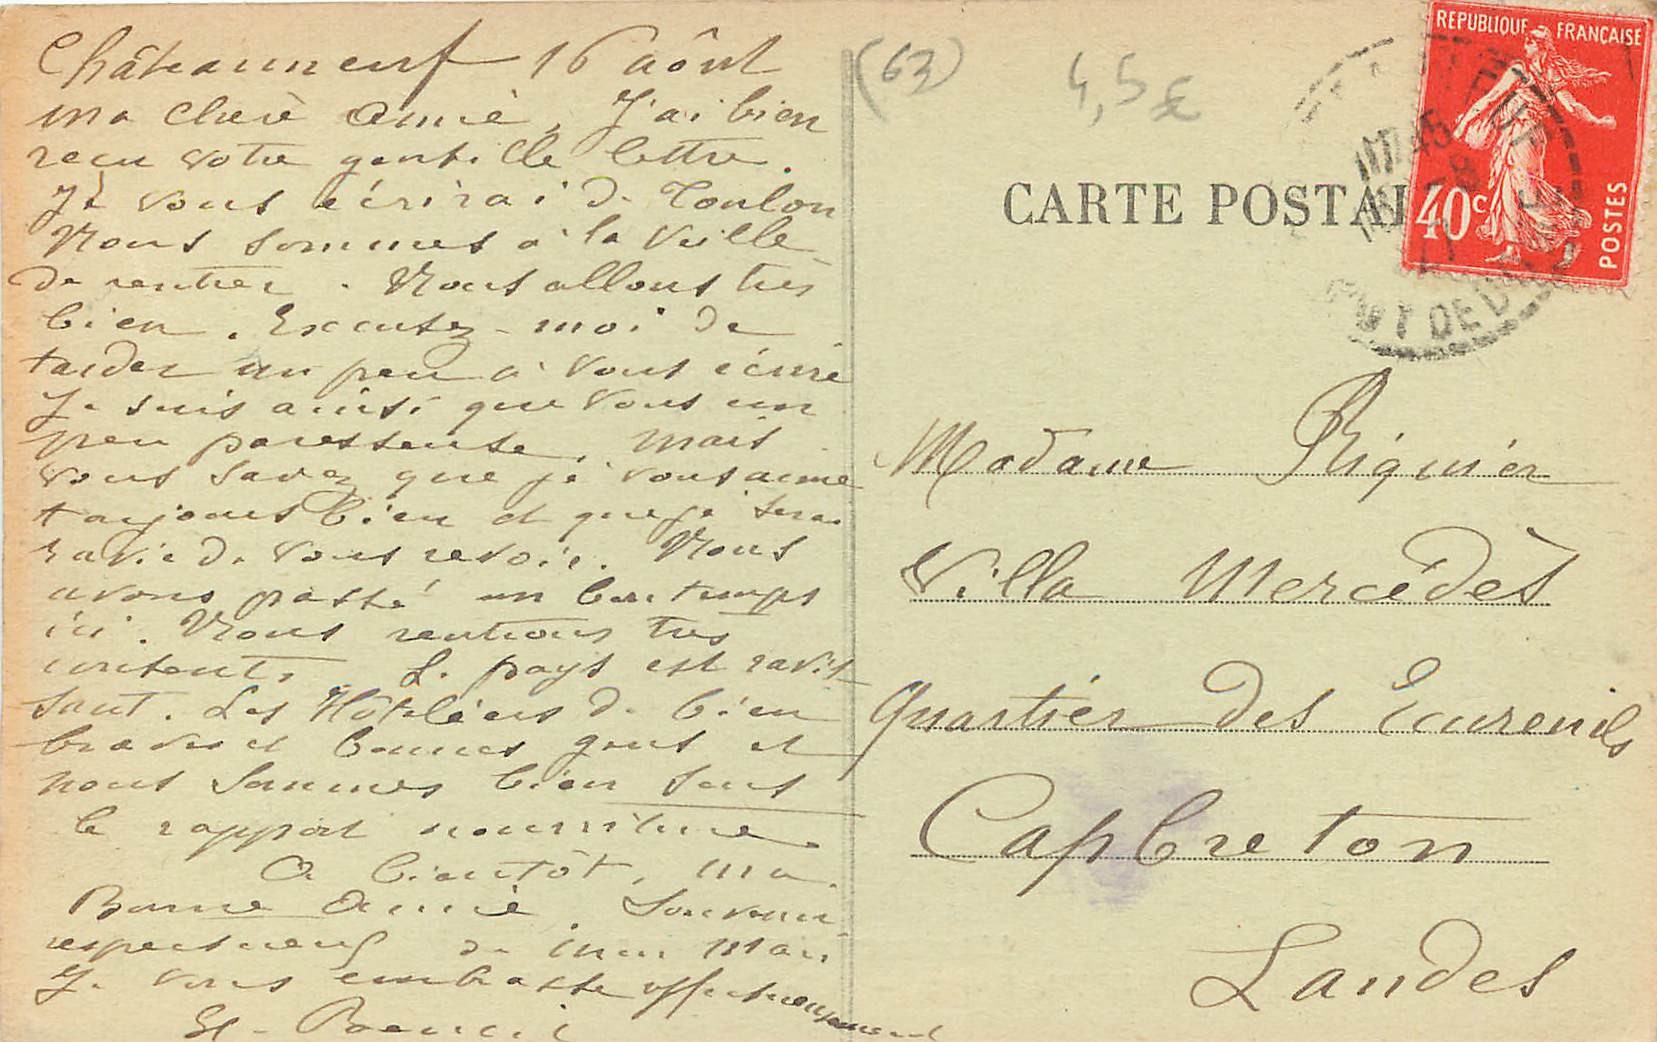 Châteauneuf 16 août
ma chère amie, J'ai bien
reçu votre gentille lettre.
Je vous écrirai de Toulon
Nous sommes à la veille
de rentrer. Nous allons très
bien. Excusez-moi de
tarder un peu à vous écrire
Je suis ainsi que vous un
peu paresseuse, mais
vous savez que je vous aime
toujours bien et que je serai
ravie de vous revoir. Nous
avons passé un bon temps
ici. Nous rentrons très
contents. Le pays est ravis-
sant. Les Hôteliers de bien
braves et bonnes gens et
nous sommes bien sous
le rapport nourriture.
A bientôt, ma
Bonne Amie, Souvenir
respectueux de mon Mari
Je vous embrasse affectueusement
(63)
4,5 €
CARTE POSTAL
REPUBLIQUE FRANÇAISE
40c
POSTES
PUY DE D
Madame Riquier
Villa Mercédès
Quartier des Ecureuils
Capbreton
Landes